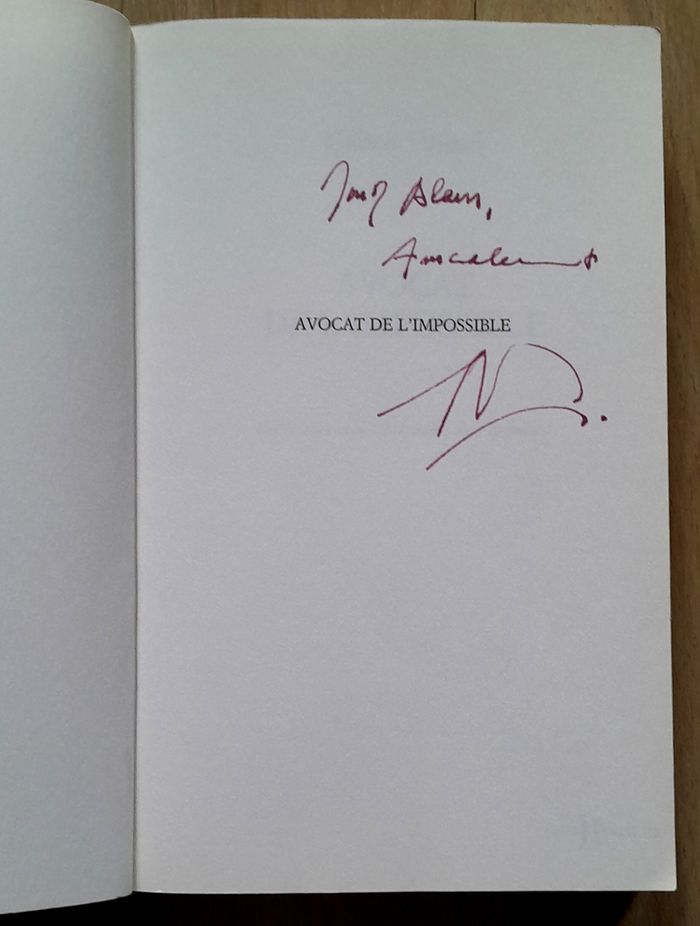 Pour Alain,
Amicalement
AVOCAT DE L'IMPOSSIBLE